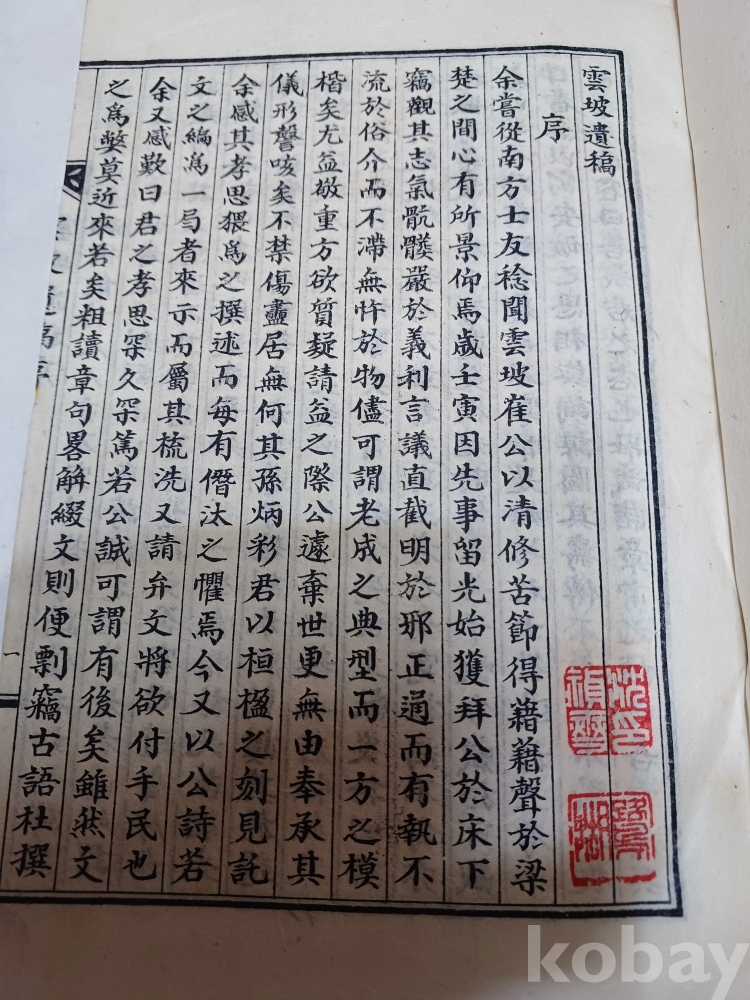 雲坡遺稿
序
余嘗從南方士友稔聞雲坡崔公以清修苦節得藉藉聲於梁
楚之間心有所景仰焉歲壬寅因先事留光始獲拜公於床下
竊觀其志氣骯髒嚴於義利言議直截明於邪正通而有執不
流於俗介而不滯無忤於物儘可謂老成之典型而一方之模
楷矣尤益敬重方欲質疑請益之際公遽棄世更無由奉承其
儀形謦咳矣不禁傷盡居無何其孫炳彩君以桓楹之刻見託
余感其孝思猥爲之撰述而每有僭汰之懼焉今又以公詩若
文之編爲一局者來示而屬其梳洗又請弁文將欲付手民也
余又感歎曰君之孝思罙久罙篤若公誠可謂有後矣雖然文
之爲獘莫近來若矣粗讀章句畧解綴文則便剽竊古語杜撰
遺稿序
一
kobay